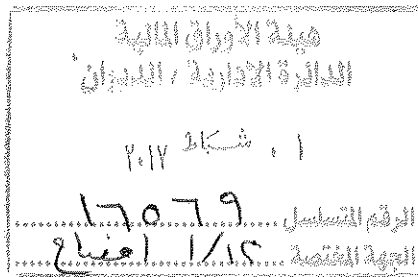 هيئة الأوراق المالية
الدائرة الإدارية / الديوان
٠١ شباط ٢٠١٧
الرقم المتسلسل ١٦٥٦٩
الجهة المختصة ١/١٢ افصاح